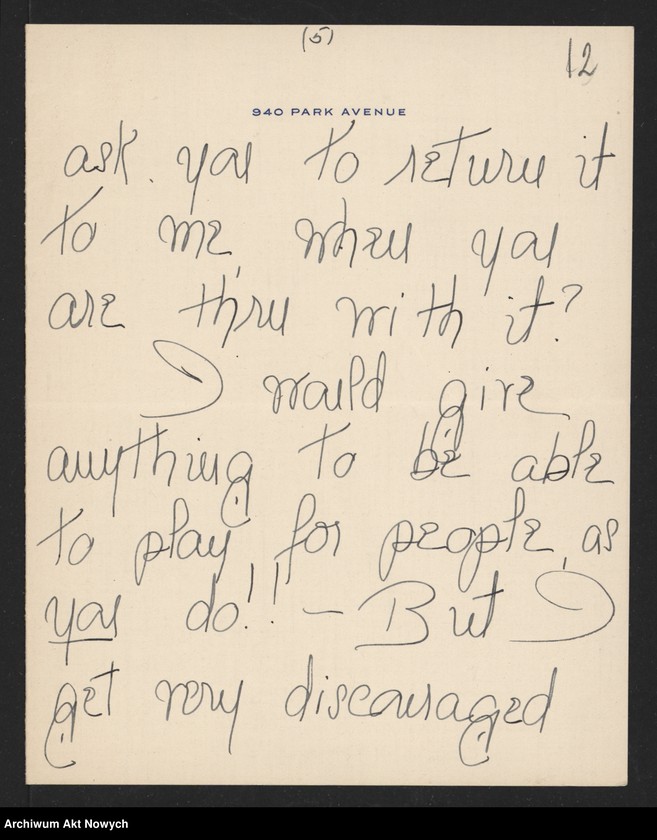 (5)
12
940 PARK AVENUE
ask you to return it
to me, when you
are thru with it?
I would give
anything to be able
to play for people, as
you do!! – But I
get very discouraged
Archiwum Akt Nowych